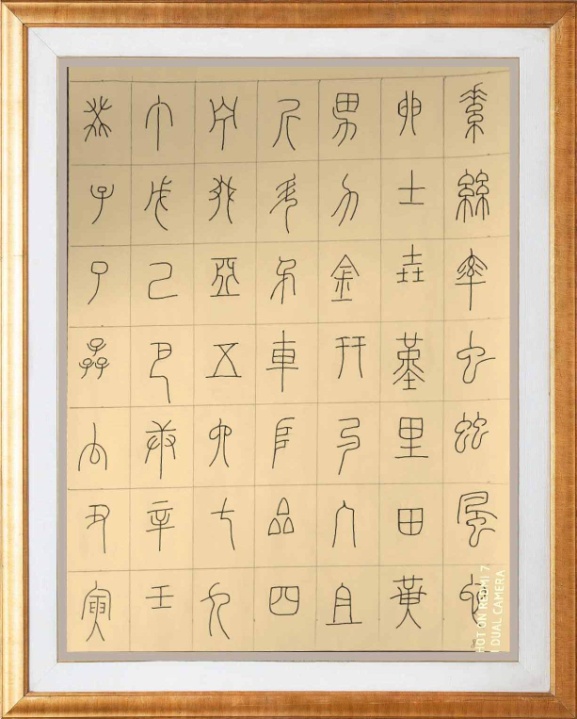 素絲率虫䖵風它
卵土垚堇里田黃
男力金幵勺几且
斤斗矛車𨸏厽四
宁叕亞五六七九
丁戊己巴庚辛壬
癸子了孨𠫓丑寅
HOT ON REDMI 7
I DUAL CAMERA